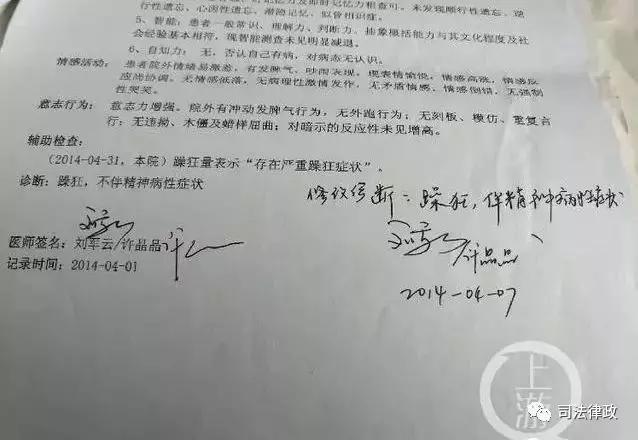 性遗忘、心因性遗忘、潜隐记忆、似曾相识症。
5、智能：患者一般常识、理解力、判断力、抽象概括能力与其文化程度及社
会经验基本相符，现智能测查未见明显减退。
6、自知力：无，否认自己有病，对病态无认识。
情感活动：患者院外情绪易激惹，有发脾气、吵闹表现，现表情愉悦，情感高涨，情感反
应尚协调。无情感低落，无病理性激情发作，无矛盾情感、情感倒错，无强制
性哭笑。
意志行为：意志力增强。院外有冲动发脾气行为，无外跑行为；无刻板、模仿、重复言
行；无违拗、木僵及蜡样屈曲；对暗示的反应性未见增高。
辅助检查：
（2014-04-31，本院）躁狂量表示“存在严重躁狂症状”。
诊断：躁狂，不伴精神病性症状
修议诊断：躁狂，伴精神病性症状
医师签名：刘军云/许品品
许品品
记录时间：2014-04-01
2014-04-07
上游
司法律政